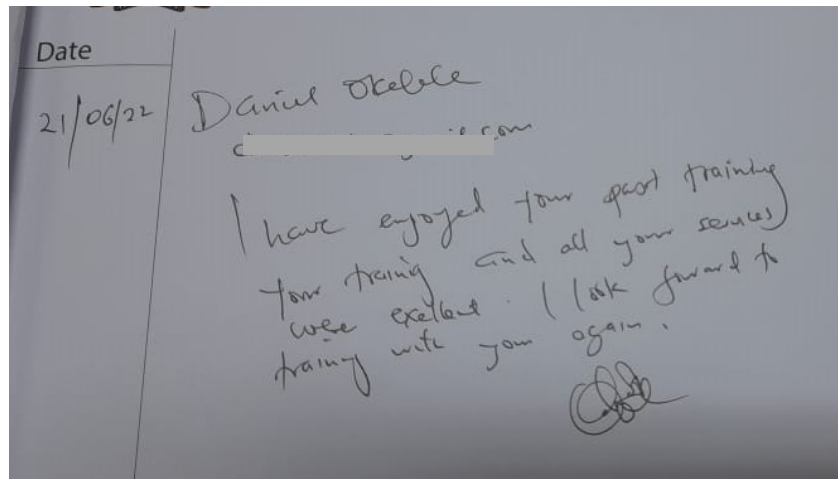 Date
21/06/22
Daniel Okelele
I have enjoyed your past training
your training and all your services
were exellent. I look forward to
training with you again.